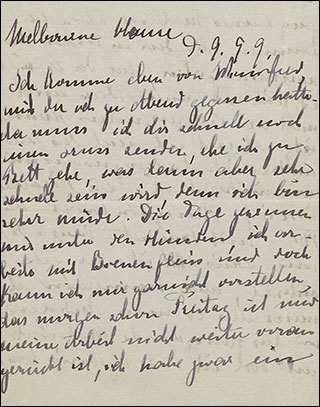 Melbourne House
D. 9. 9. 9.
Ich komme eben von Winnifred,
mit der ich zu Abend gegessen hatte
da muss ich dir schnell noch
einen Gruss senden, ehe ich zu
Bett gehe, was kaum aber sehr
schnell sein wird, denn ich bin
sehr müde. Die Tage
mir unter den Händen ich
mit Bienenfleiss und doch
kann ich mir garnicht vorstellen,
das morgen schon Freitag ist und
meine Arbeit nicht weiter voran
gerückt ist, ich habe zwar ein